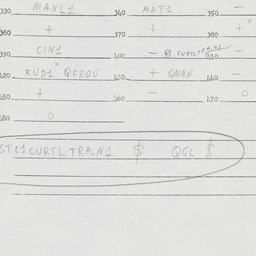 330 MAXL1 340 MAT1 350 —
360 + 370 + 380 + x
390 CIN1 400 — 410 —
420 RUD1 x QFROU 430 + QMAN 440 —
450 + 460 — 470 0
480 0
STC1CURTLTRA.N1 $ QGL $